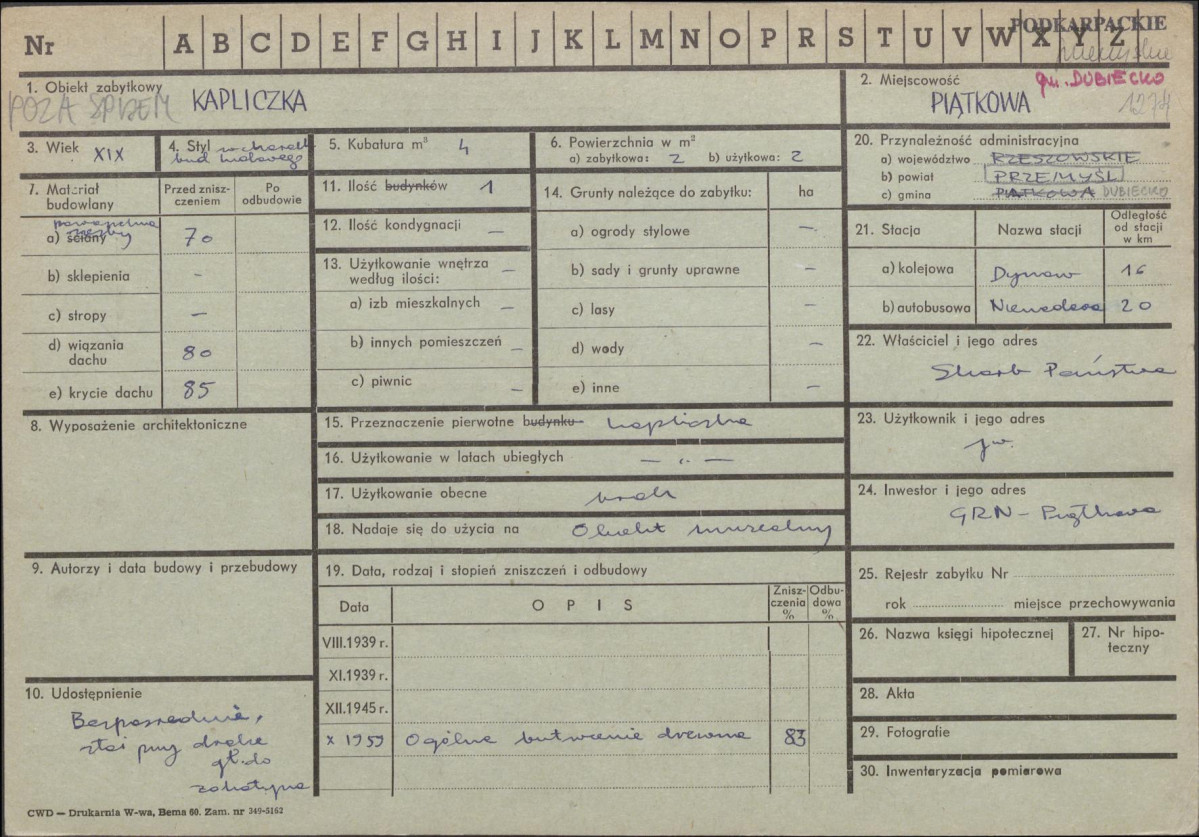 PODKARPACKIE
Nr A B C D E F G H I J K L M N O P R S T U V W X Y Z
przemyskie
1. Obiekt zabytkowy
POZA SPISEM
KAPLICZKA
2. Miejscowość
gm. DUBIECKO
PIĄTKOWA
1274
3. Wiek XIX
4. Styl w charakt.
bud. ludowego
5. Kubatura m³ 4
6. Powierzchnia w m²
a) zabytkowa: 2 b) użytkowa: 2
7. Materiał budowlany
Przed zniszczeniem
Po odbudowie
a) ściany 70
b) sklepienia -
c) stropy -
d) wiązania dachu 80
e) krycie dachu 85
8. Wyposażenie architektoniczne
9. Autorzy i data budowy i przebudowy
10. Udostępnienie
Bezpośrednie,
stoi przy drodze
gł. do
11. Ilość budynków 1
12. Ilość kondygnacji -
13. Użytkowanie wnętrza -
według ilości:
a) izb mieszkalnych -
b) innych pomieszczeń -
c) piwnic -
14. Grunty należące do zabytku: ha
a) ogrody stylowe -
b) sady i grunty uprawne -
c) lasy -
d) wody -
e) inne -
15. Przeznaczenie pierwotne budynku kapliczka
16. Użytkowanie w latach ubiegłych - „ -
17. Użytkowanie obecne brak
18. Nadaje się do użycia na Obiekt muzealny
19. Data, rodzaj i stopień zniszczeń i odbudowy
Data
OPIS
Zniszczenia %
Odbudowa %
VIII.1939 r.
XI.1939 r.
XII.1945 r.
X 1959 Ogólne butwienie drewna 83
20. Przynależność administracyjna
a) województwo RZESZOWSKIE
b) powiat PRZEMYŚL
c) gmina PIĄTKOWA DUBIECKO
21. Stacja
Nazwa stacji
Odległość od stacji w km
a) kolejowa Dynów 16
b) autobusowa Nienadowa 20
22. Właściciel i jego adres
Skarb Państwa
23. Użytkownik i jego adres
jw.
24. Inwestor i jego adres
GRN - Piątkowa
25. Rejestr zabytku Nr
rok miejsce przechowywania
26. Nazwa księgi hipotecznej
27. Nr hipoteczny
28. Akta
29. Fotografie
30. Inwentaryzacja pomiarowa
CWD — Drukarnia W-wa, Bema 60. Zam. nr 349-5162